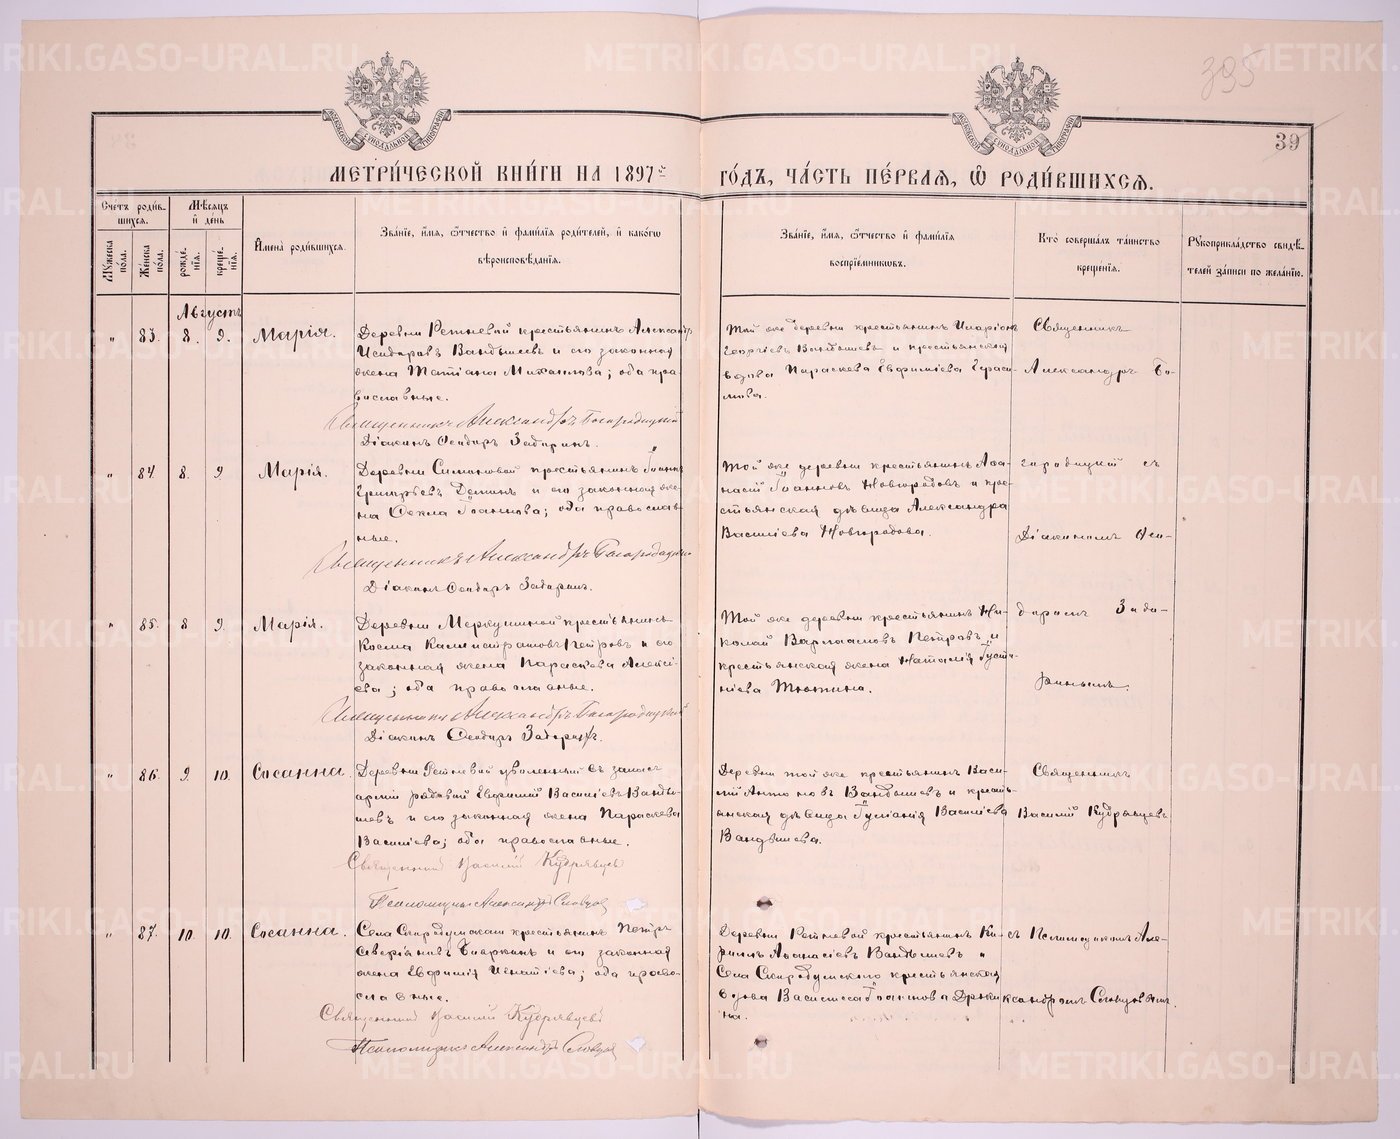 395
39
МЕТРИ́ЧЕСКОЙ КНИ́ГИ НА 1897й ГО́ДЪ, ЧА́СТЬ ПЕ́РВАЯ, Ѽ РОДИ́ВШИХСЯ.
Счетъ роди́вшихся.
Му́жеска пола.
Же́нска пола.
М҄ѣсяцъ и де́нь
рожде́нїя.
креще́нїя.
Имена̀ родившихся.
Зва́нїе, и́мя, ѻ҆́тчество и фами́лїя роди́телей, и како́гѡ
вѣроисповѣ́данїя.
Зва́нїе, и́мя, ѻ҆́тчество и фами́лїя
воспрїе́мникѡвъ.
Кто̀ соверша́лъ та́инство
креще́нїя.
Рꙋкоприкла́дство свидѣ́телей за́писи по жела́нїю.
Августъ
„ 83. 8. 9. Марія.
Деревни Ретневой крестьянинъ Александръ
Исидоровъ Вандышевъ и его законная
жена Татіана Михаилова; оба православные.
Священникъ Александръ Богородицкій
Діаконъ Ѳеодоръ Забаринъ.
Той же деревни крестьянинъ Иларіонъ
Георгіевъ Вандышевъ и крестьянская
вдова Параскева Евфиміева Герасимова.
Священникъ
Александръ Бо-
„ 84. 8. 9 Марія.
Деревни Симановой крестьянинъ Іоаннъ
Григорьевъ Деминъ и его законная жена
Ѳекла Іоаннова; оба православные.
Священникъ Александръ Богородицкій
Діаконъ Ѳеодоръ Забаринъ.
Той же деревни крестьянинъ Аѳанасій
Іоанновъ Новгородовъ и крестьянская
дѣвица Александра
Василіева Новгородова.
городицкій съ
Діакономъ Ѳео-
„ 85. 8 9. Марія.
Деревни Меркушиной крестьянинъ
Косма Каллистратовъ Петровъ и его
законная жена Параскева Алексіева;
оба православные.
Священникъ Александръ Богородицкій
Діаконъ Ѳеодоръ Забаринъ.
Той же деревни крестьянинъ Николай
Варлаамовъ Петровъ и
крестьянская жена Наталія Іустиніева
Тюкина.
доромъ Заба-
ринымъ.
„ 86. 9. 10. Сосанна.
Деревни Ретневой уволенный въ запасъ
арміи рядовой Евфимій Василіевъ Вандышевъ
и его законная жена Параскева
Василіева; оба православные.
Священникъ Василій Кудрявцевъ
Псаломщикъ Александръ Словцовъ
Деревни той же крестьянинъ Василій
Антоновъ Вандышевъ и крестьянская
дѣвица Іуліанія Василіева
Вандышева.
Священникъ
Василій Кудрявцевъ
„ 87. 10. 10. Сосанна.
Села Скородумскаго крестьянинъ Петръ
Северіановъ и его законная
жена Евфимія Игнатіева; оба православные.
Священникъ Василій Кудрявцевъ
Псаломщикъ Александръ Словцовъ
Деревни Ретневой крестьянинъ
Аѳанасіевъ Вандышевъ и
Села Скородумскаго крестьянская
вдова Василисса Іоаннова
съ Псаломщикомъ Але-
ксандромъ Словцовымъ.
METRIKI.GASO-URAL.RU